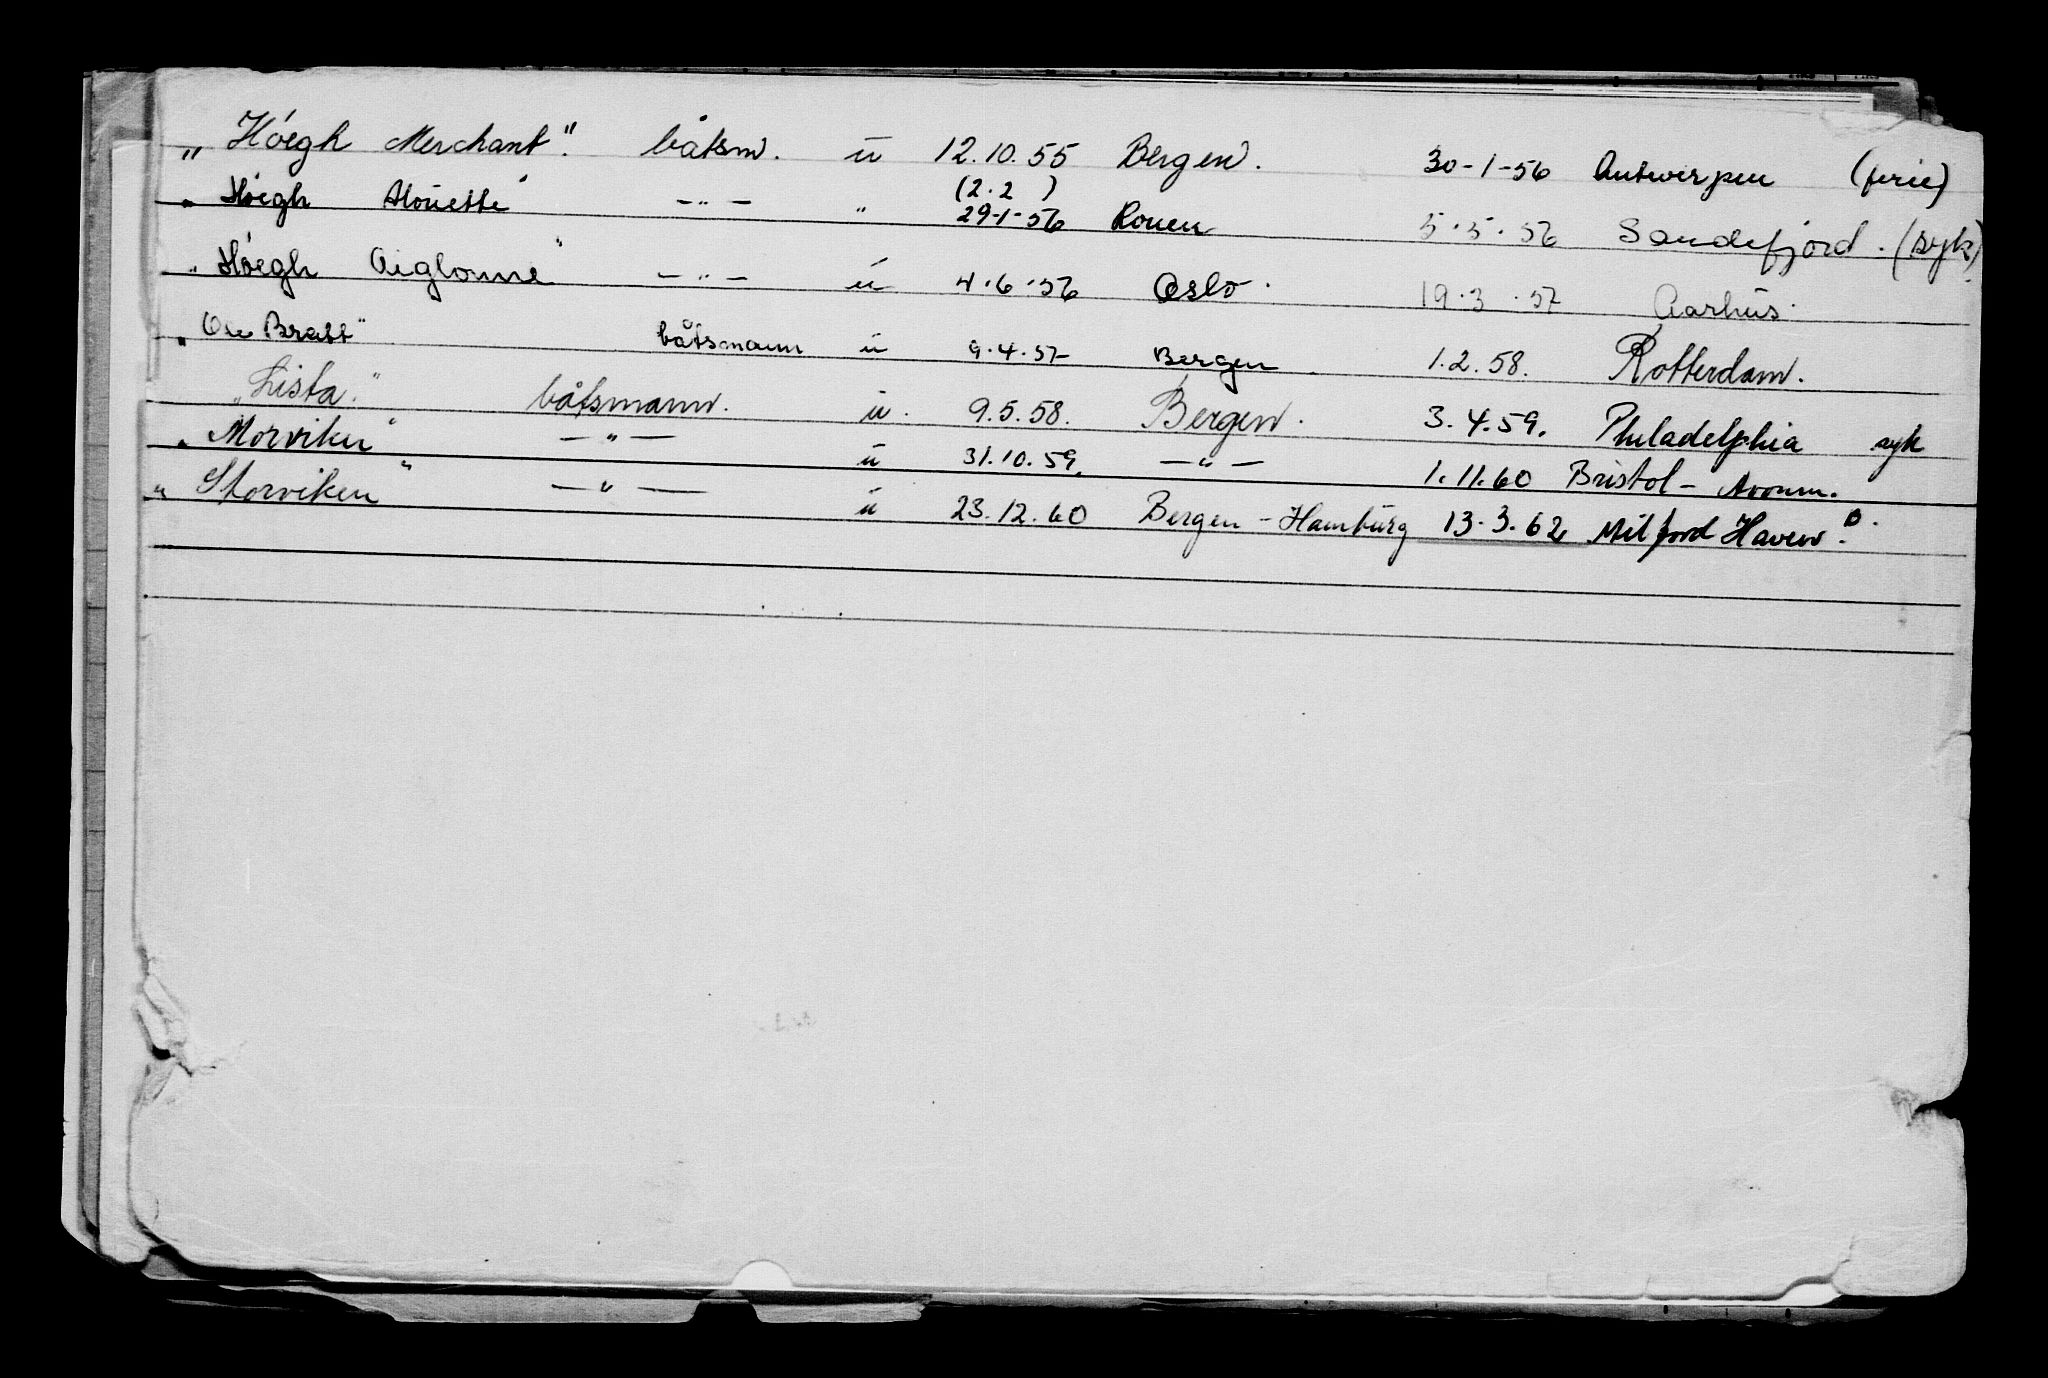 „ Höegh Merchant". båtsm. u 12.10.55 Bergen. 30-1-56 Antwerpen (ferie)
(2.2 )
„ Höegh Alouette" -"- " 29-1-56 Rouen 5.5.56 Sandefjord. (syk)
„ Höegh Aiglonne" -"- u 4.6.56 Oslo. 19.3.57 Aarhus.
„ Ole Bratt" båtsmann u 9.4.57 Bergen 1.2.58. Rotterdam.
„ Lista." båtsmann. u. 9.5.58. Bergen. 3.4.59. Philadelphia syk
„ Morviken" -"- u 31.10.59. -"- 1.11.60 Bristol - Avonm.
„ Storviken" -"- u 23.12.60 Bergen - Hamburg 13.3.62 Milford Haven.